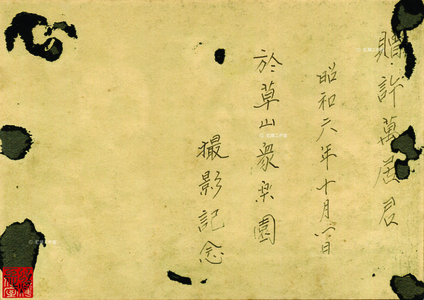 贈許萬居君
昭和六年十月六日
於草山衆楽園
撮影記念